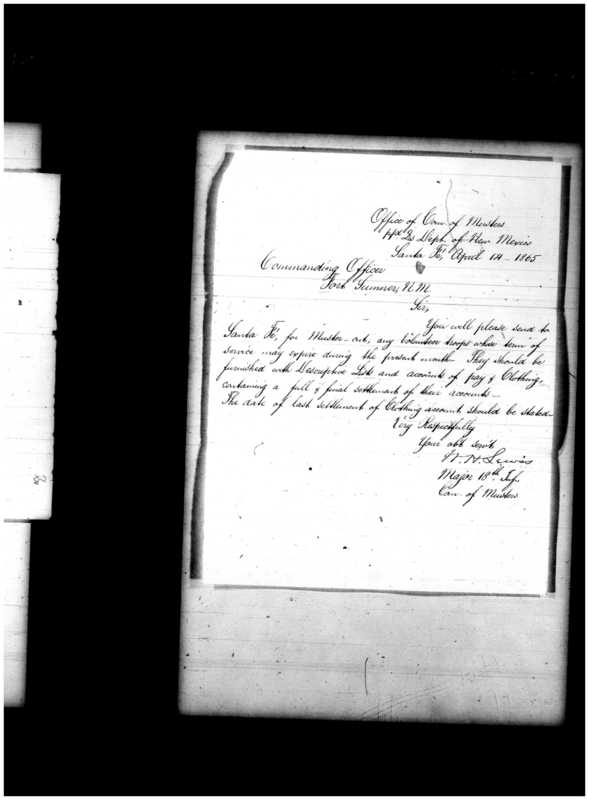 Office of Com. of Musters
Hd Qrs Dept. of New Mexico
Santa Fé, April 14 - 1865
Commanding Officer
Fort Sumner, N.M.
Sir,
You will please send to
Santa Fé, for Muster-out, any Volunteer troops whose term of
service may expire during the present month. They should be
furnished with Descriptive Lists and accounts of pay & Clothing,
containing a full & final settlement of their accounts -
The date of last settlement of Clothing account should be stated -
Very Respectfully
Your obt servt
Lewis
Major 18th Inf.
Com. of Musters